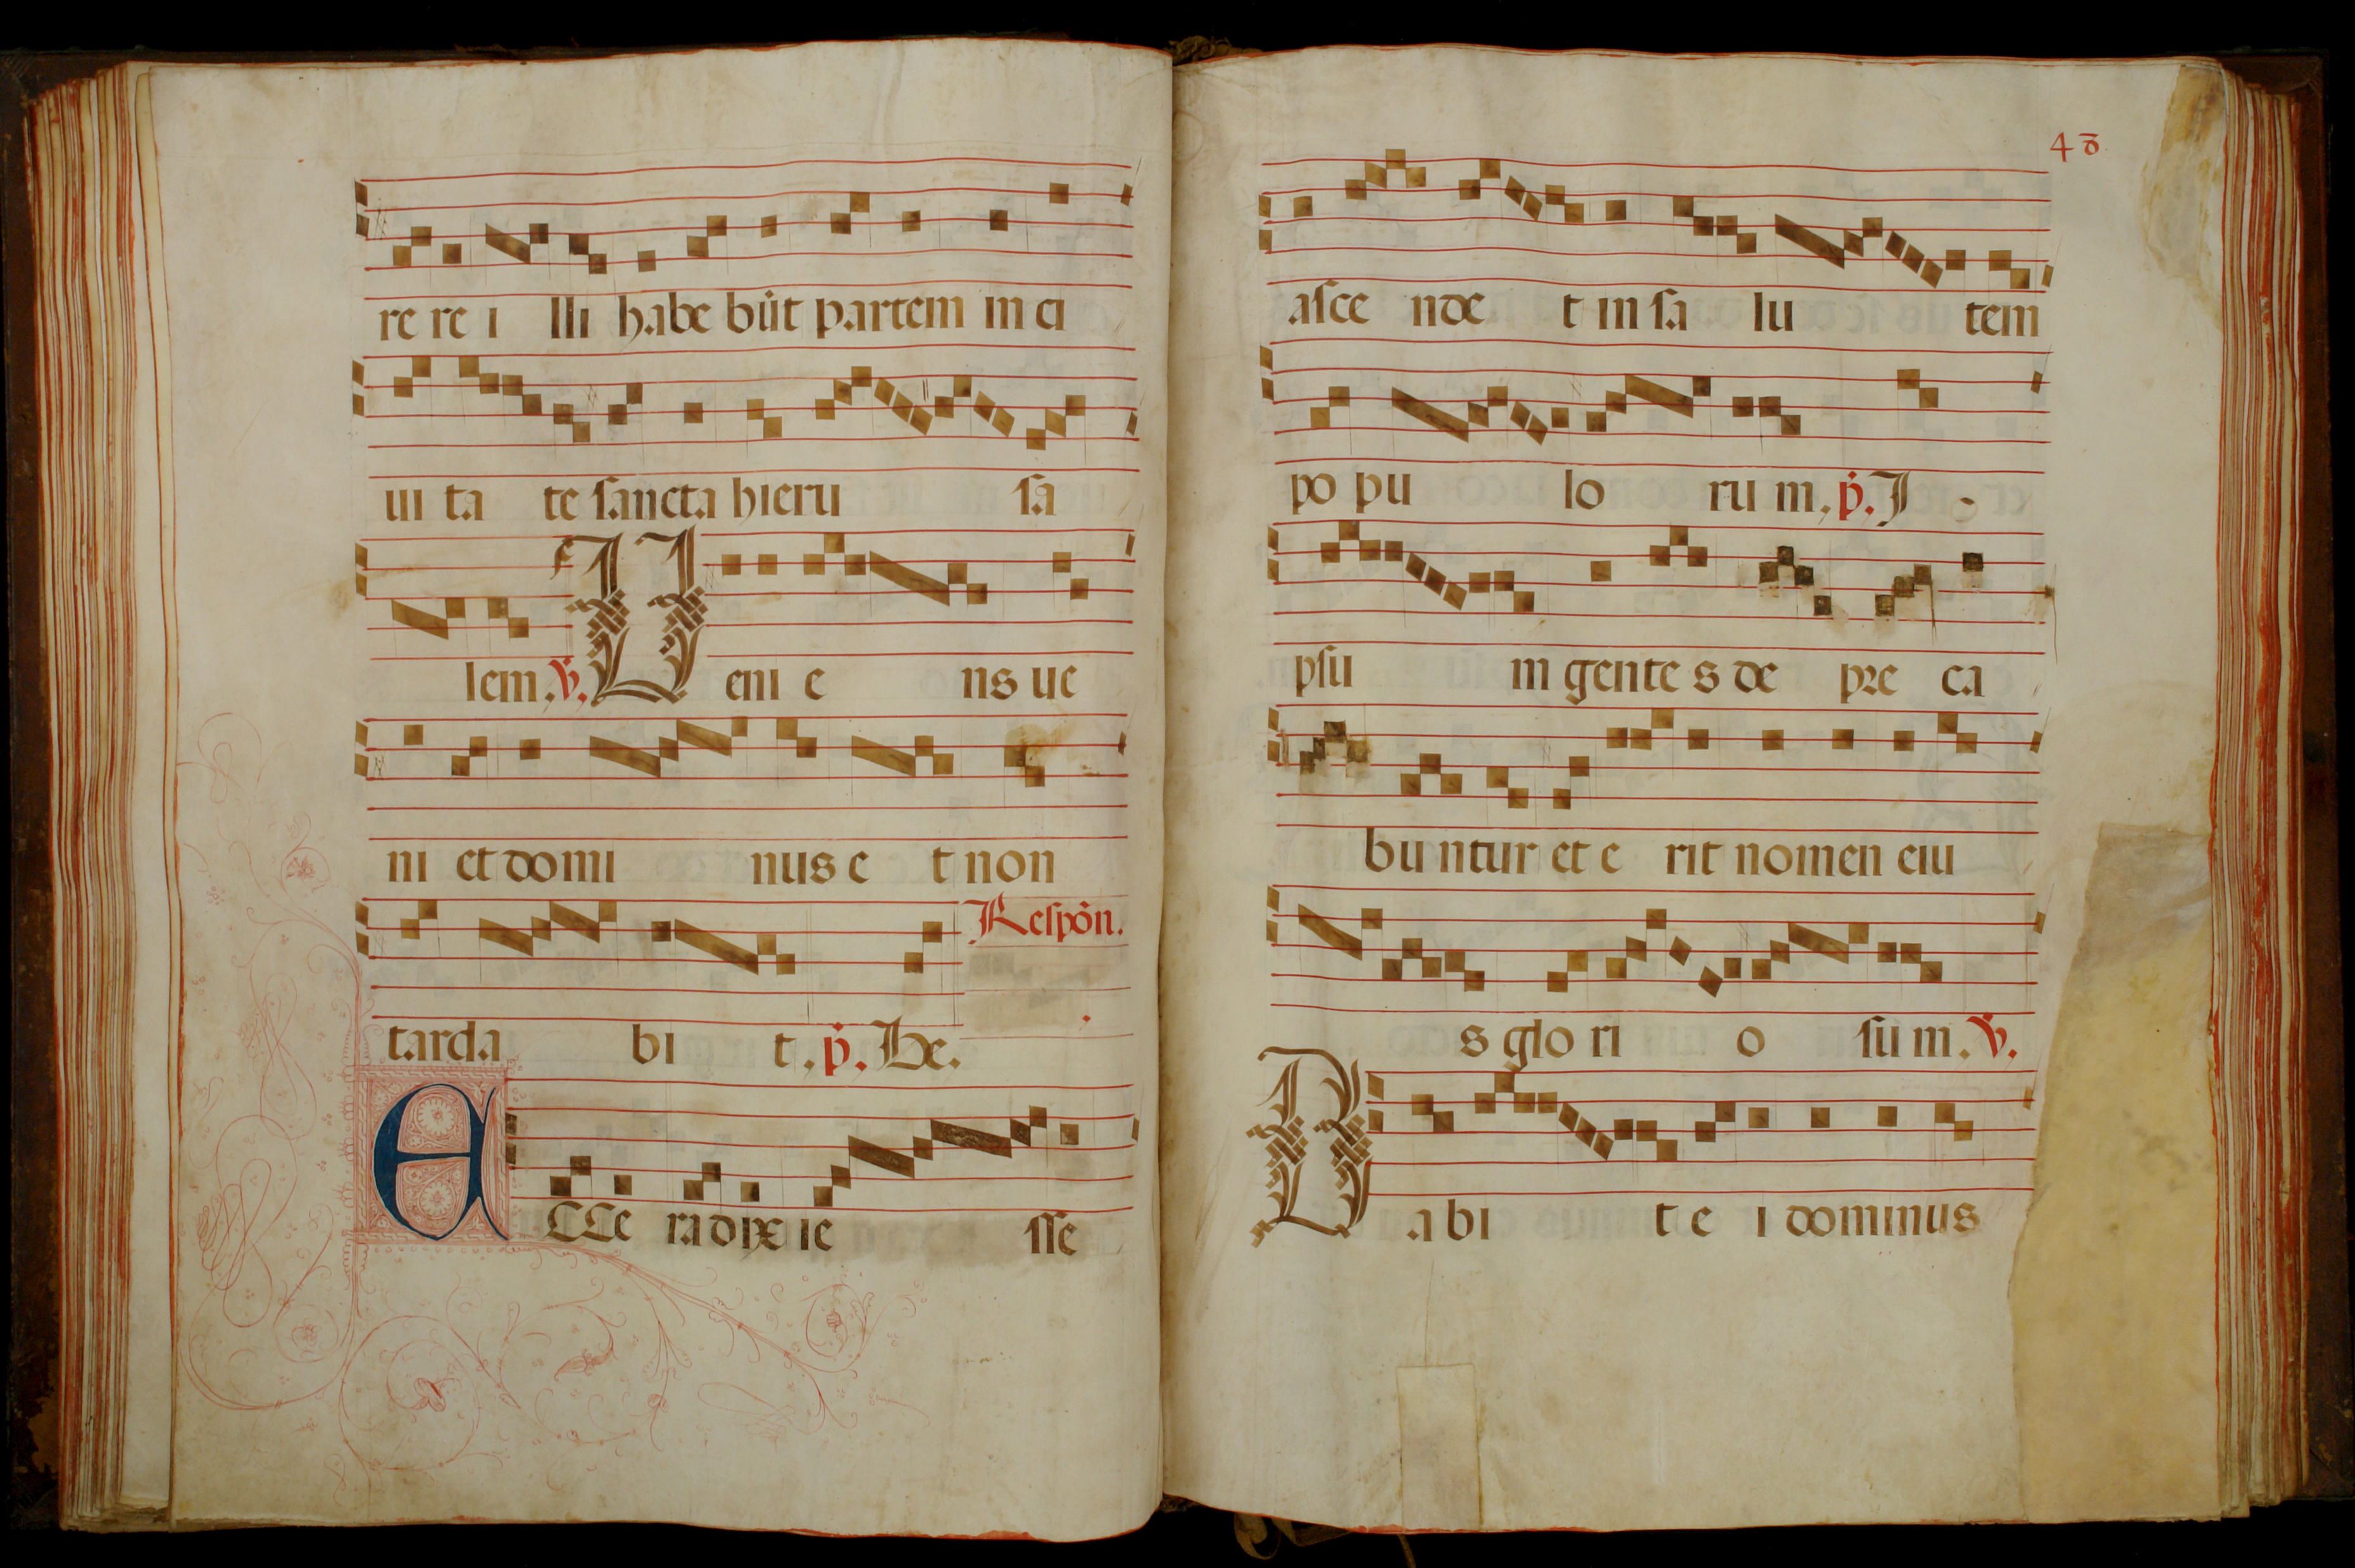 re re i lli habe bu᷑t partem in ci
ui ta te ſancta hieru ſa
lem. V. Ueni e ns ue
ni et domi nus e t non
Reſpōn.
tarda bi t. p̄. He.
ECCe radix ie ſſe
48
aſce nde t in ſa lu tem
po pu lo ru m. p̄. I
pſu in gente s de pre ca
bu ntur et e rit nomen eiu
s glo ri o ſu m. V.
Dabi t e i dominus